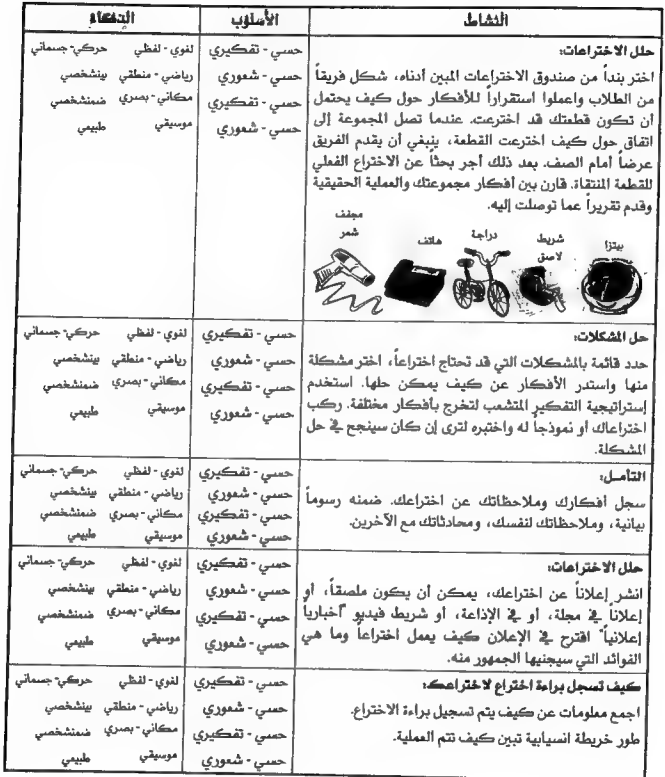 النشاط
الأسلوب
الذكاء
حلل الاختراعات:
اختر بنداً من صندوق الاختراعات المبين أدناه، شكل فريقاً
من الطلاب واعملوا استقراراً للأفكار حول كيف يحتمل
أن تكون قطعتك قد اخترعت. عندما تصل المجموعة إلى
اتفاق حول كيف اخترعت القطعة، ينبغي أن يقدم الفريق
عرضاً أمام الصف. بعد ذلك أجر بحثاً عن الاختراع الفعلي
للقطعة المنتقاة. قارن بين أفكار مجموعتك والعملية الحقيقية
وقدم تقريراً عما توصلت إليه.
بيتزا
شريط
لاصق
دراجة
هاتف
مجفف
شعر
حسي - تفكيري
حسي - شعوري
حسي - تفكيري
حسي - شعوري
لغوي - لفظي حركي- جسماني
رياضي - منطقي بينشخصي
مكاني - بصري ضمنشخصي
موسيقي طبيعي
حل المشكلات:
حدد قائمة بالمشكلات التي قد تحتاج اختراعاً، اختر مشكلة
منها واستدر الأفكار عن كيف يمكن حلها. استخدم
إستراتيجية التفكير المتشعب لتخرج بأفكار مختلفة. ركب
اختراعاك أو نموذجاً له واختبره لترى إن كان سينجح في حل
المشكلة.
حسي - تفكيري
حسي - شعوري
حسي - تفكيري
حسي - شعوري
لغوي - لفظي حركي- جسماني
رياضي - منطقي بينشخصي
مكاني - بصري ضمنشخصي
موسيقي طبيعي
التأمل:
سجل أفكارك وملاحظاتك عن اختراعك. ضمنه رسوماً
بيانية، وملاحظاتك لنفسك، ومحادثاتك مع الآخرين.
حسي - تفكيري
حسي - شعوري
حسي - تفكيري
حسي - شعوري
لغوي - لفظي حركي- جسماني
رياضي - منطقي بينشخصي
مكاني - بصري ضمنشخصي
موسيقي طبيعي
حلل الاختراعات:
انشر إعلاناً عن اختراعك، يمكن أن يكون ملصقاً، أو
إعلاناً في مجلة، أو في الإذاعة، أو شريط فيديو "أخبارياً
إعلانياً" اقترح في الإعلان كيف يعمل اختراعاً وما هي
الفوائد التي سيجنيها الجمهور منه.
حسي - تفكيري
حسي - شعوري
حسي - تفكيري
حسي - شعوري
لغوي - لفظي حركي- جسماني
رياضي - منطقي بينشخصي
مكاني - بصري ضمنشخصي
موسيقي طبيعي
كيف تسجل براءة اختراع لاختراعك:
اجمع معلومات عن كيف يتم تسجيل براءة الاختراع.
طور خريطة انسيابية تبين كيف تتم العملية.
حسي - تفكيري
حسي - شعوري
حسي - تفكيري
حسي - شعوري
لغوي - لفظي حركي- جسماني
رياضي - منطقي بينشخصي
مكاني - بصري ضمنشخصي
موسيقي طبيعي